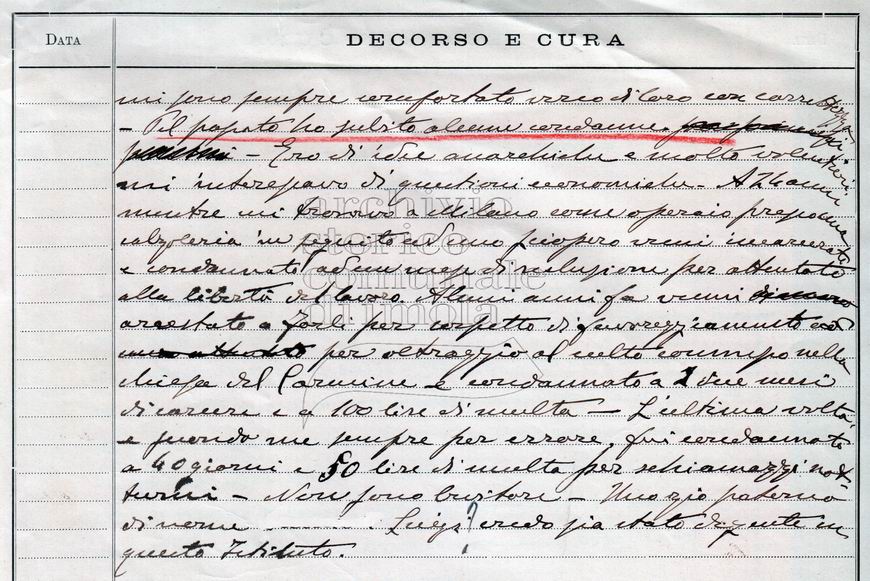 DATA
DECORSO E CURA
mi sono sempre comfortato verso di loro con correttezza
- Pel passato ho subito alcune condanne.
- Ero di idee anarchiche e molto volentieri
mi interessavo di questioni economiche - A 26 anni
mentre mi trovavo a Milano come operaio presso una
calzoleria in seguito ad uno sciopero venni incarcerato
e condannato ad un mese di reclusione per attentato
alla libertà del lavoro. Alcuni anni fa venni
arrestato a Forlì per sospetto di favoreggiamento ed
per oltraggio al culto commesso nella
chiesa del Carmine e condannato a due mesi
di carcere e a 100 lire di multa - L'ultima volta,
e secondo me sempre per errore, fui condannato
a 40 giorni e 50 lire di multa per schiamazzi not-
turni - Non sono bevitore - Uno zio paterno
di nome .......... Luigi? credo sia stato degente in
questo Istituto.
archivio
storico
comunale
di imola